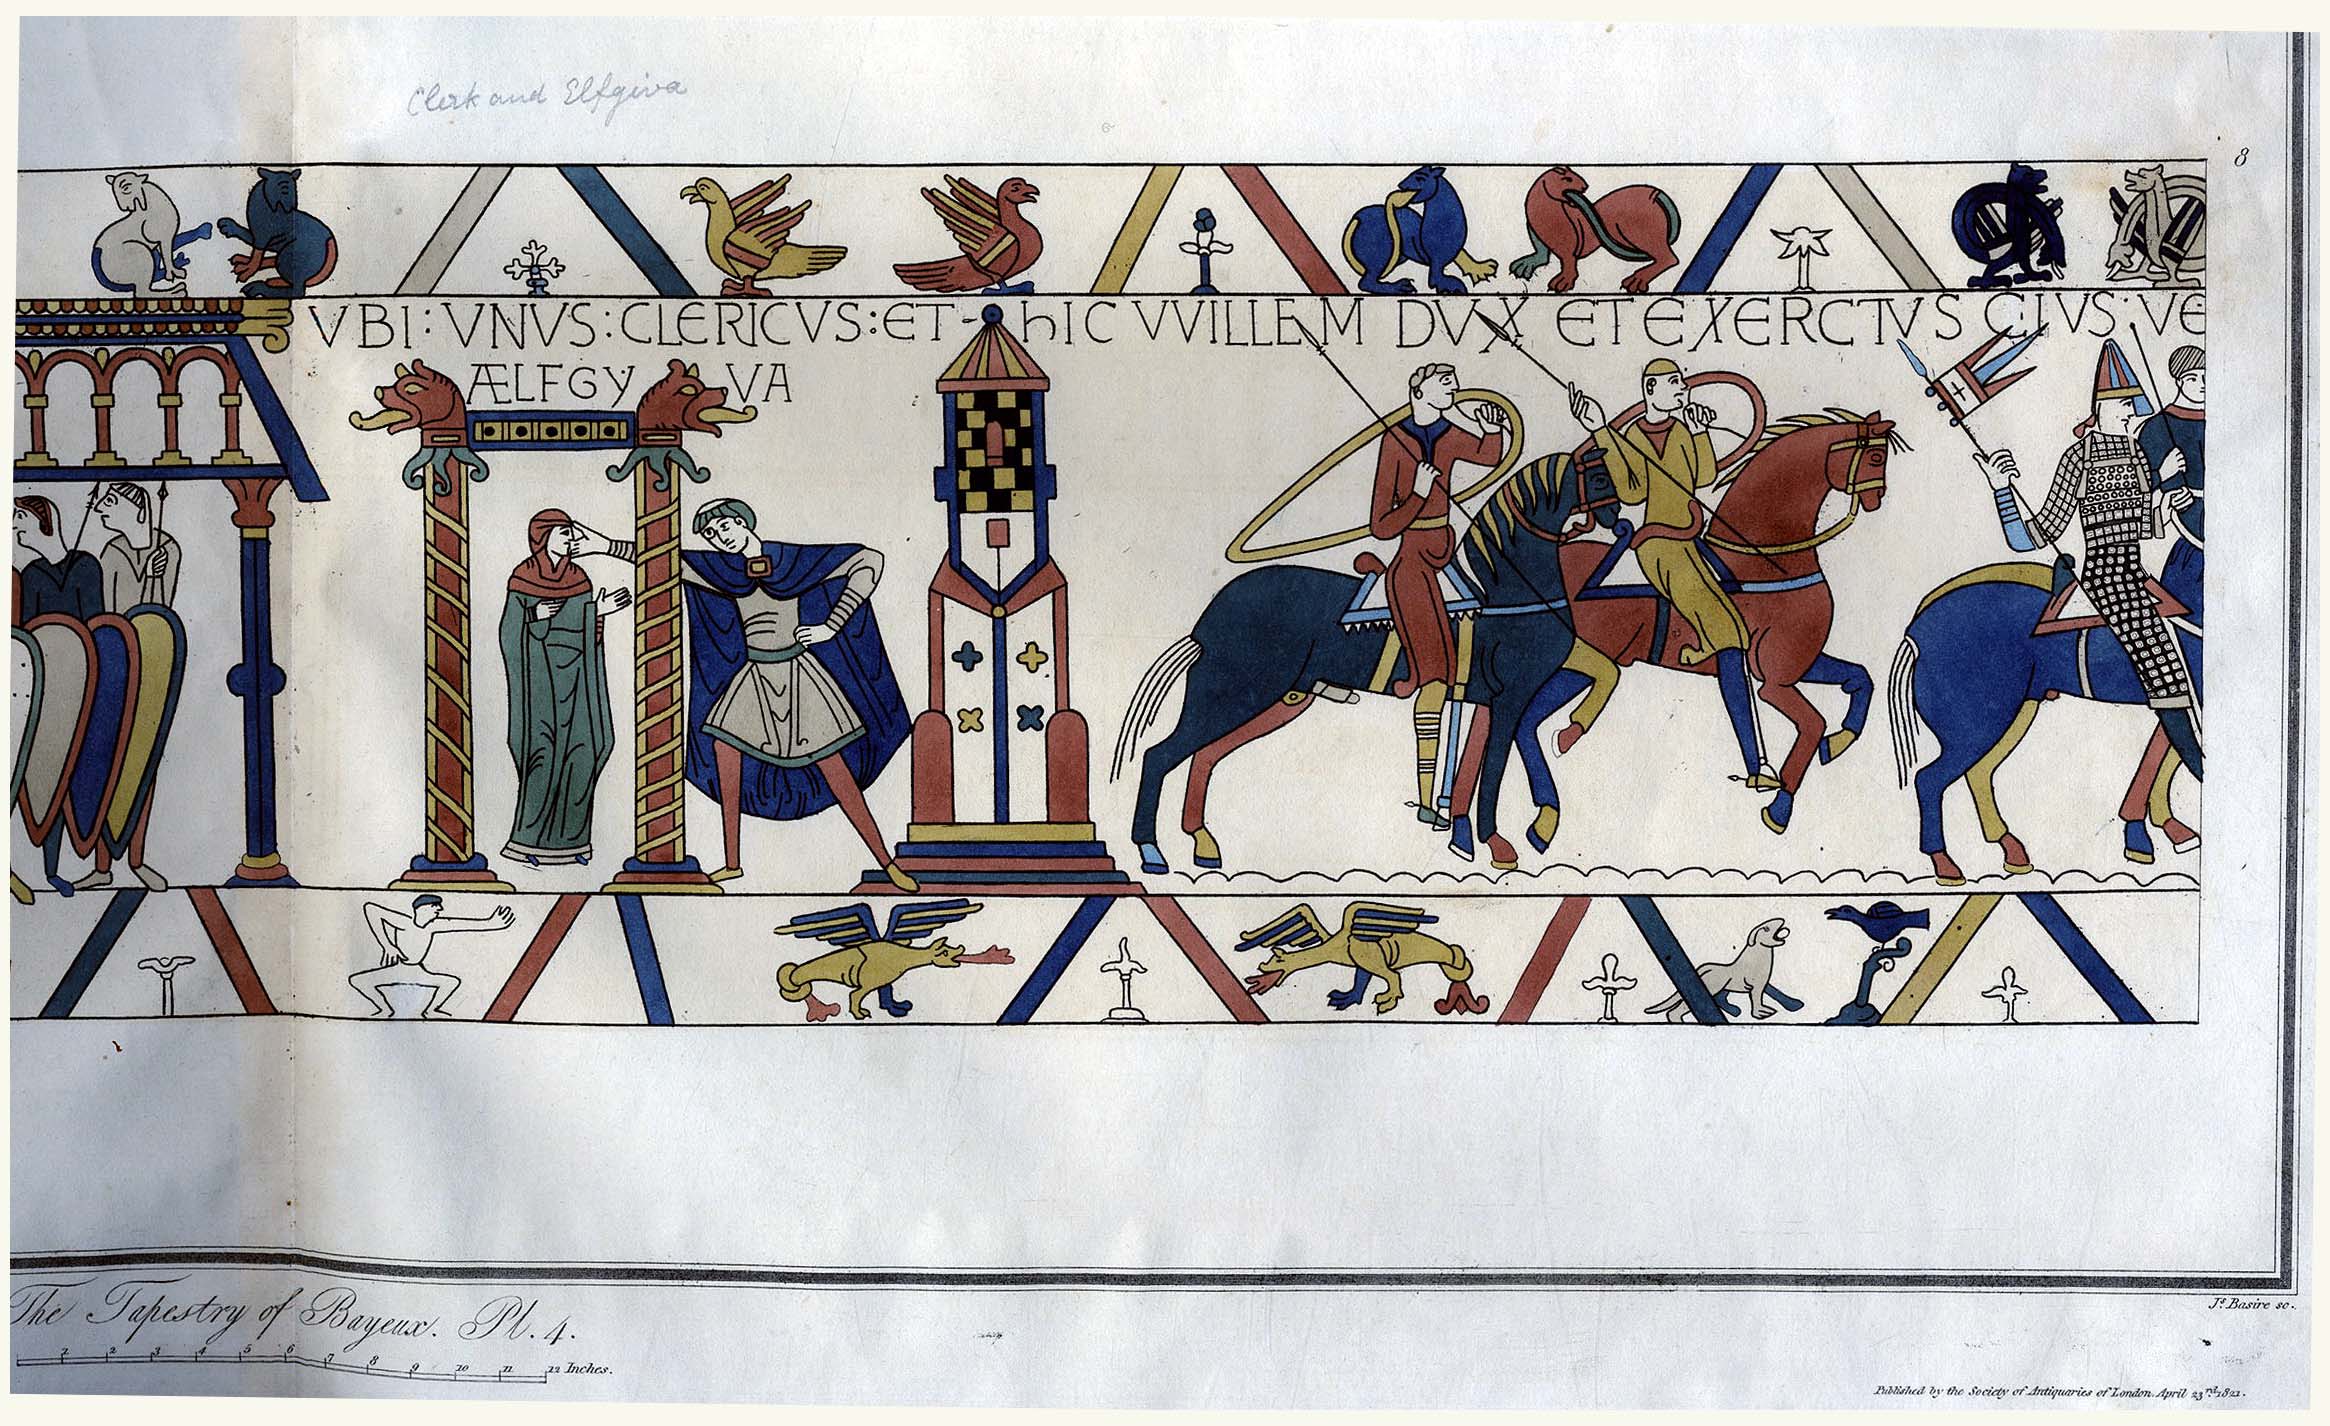 Clerk and Elfgiva
8
VBI : VNVS : CLERICVS : ET - hIC VVILLEM DVX ET EXERCTVS EIVS : VE
ÆLFGYVA
The Tapestry of Bayeux. Pl. 4.
1 2 3 4 5 6 7 8 9 10 11 12 Inches.
Js. Basire sc.
Published by the Society of Antiquaries of London. April 23rd. 1821.